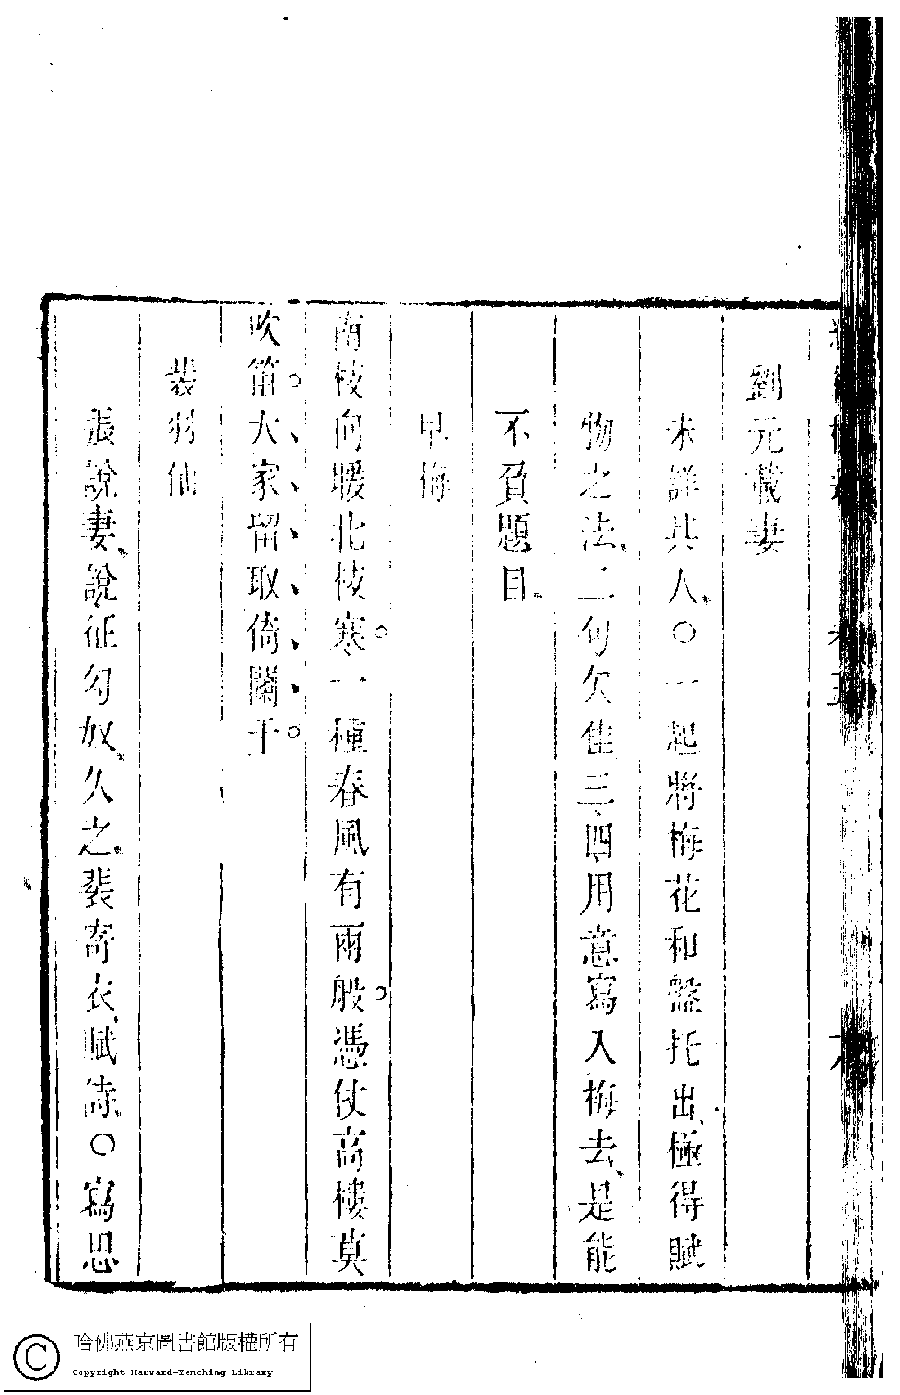 劉元載妻
未詳其人○一起將梅花和盤托出極得賦
物之法二句欠佳三四用意寫入梅去是能
不負題目
早梅
南枝向暖北枝寒一種春風有兩般憑仗高樓莫
吹笛大家留取倚闌干
裴羽仙
張說妻說征匈奴久之裴寄衣賦詩○寫思
哈佛燕京圖書館版權所有
Copyright Harvard-Yenching Library